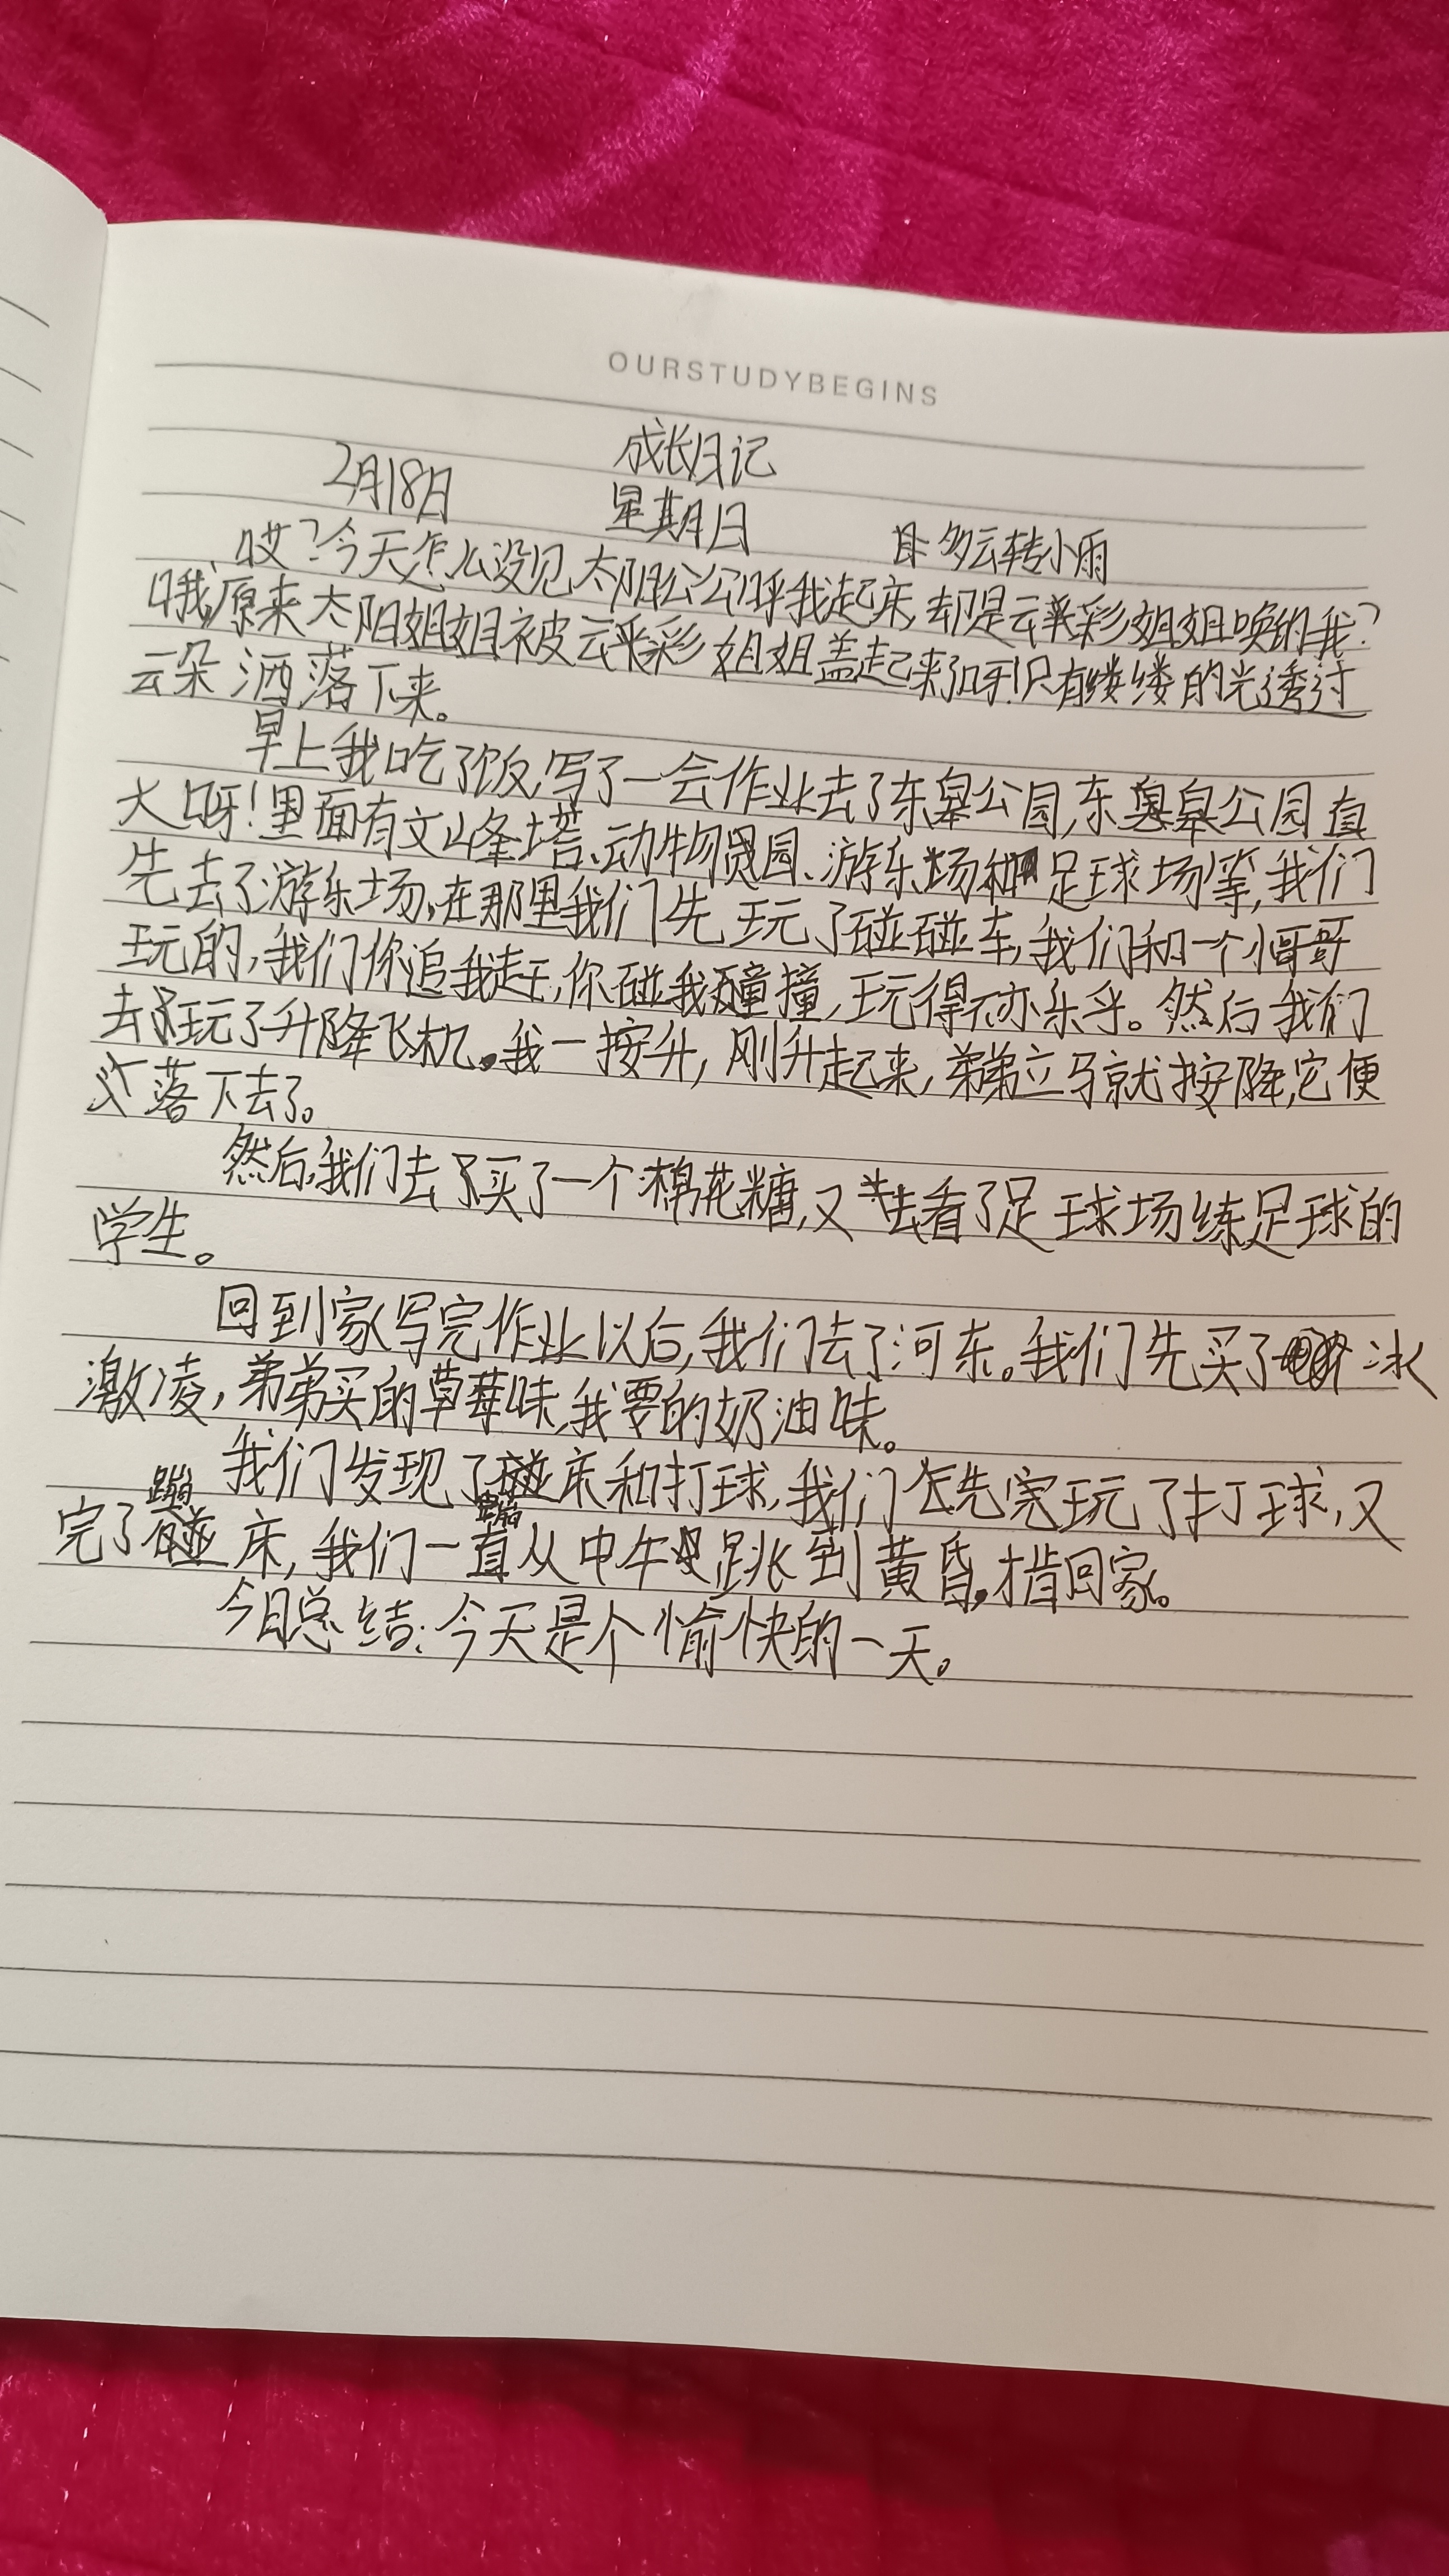 OURSTUDYBEGINS
成长日记
2月18日 星期日 多云转小雨
哎？今天怎么没见太阳公公呼我起床，却是云彩姐姐唤的我？
哦，原来太阳姐姐被云彩姐姐盖起来了呀！只有缕缕的光透过
云朵洒落下来。
早上我吃了饭，写了一会作业去了东皋公园，东皋公园真
大呀！里面有文峰塔、动物园、游乐场和足球场等，我们
先去了游乐场，在那里我们先玩了碰碰车，我们和一个小哥哥
玩的，我们你追我赶，你碰我撞，玩得不亦乐乎。然后我们
去玩了升降飞机。我一按升，刚升起来，弟弟立马就按降，它便
落下去了。
然后，我们去买了一个棉花糖，又去看了足球场练足球的
学生。
回到家写完作业以后，我们去了河东。我们先买了冰
激凌，弟弟买的草莓味，我要的奶油味。
我们发现了蹦床和打球，我们先玩了打球，又
完了蹦床，我们一直从中午跳到黄昏，才肯回家。
今日总结：今天是个愉快的一天。